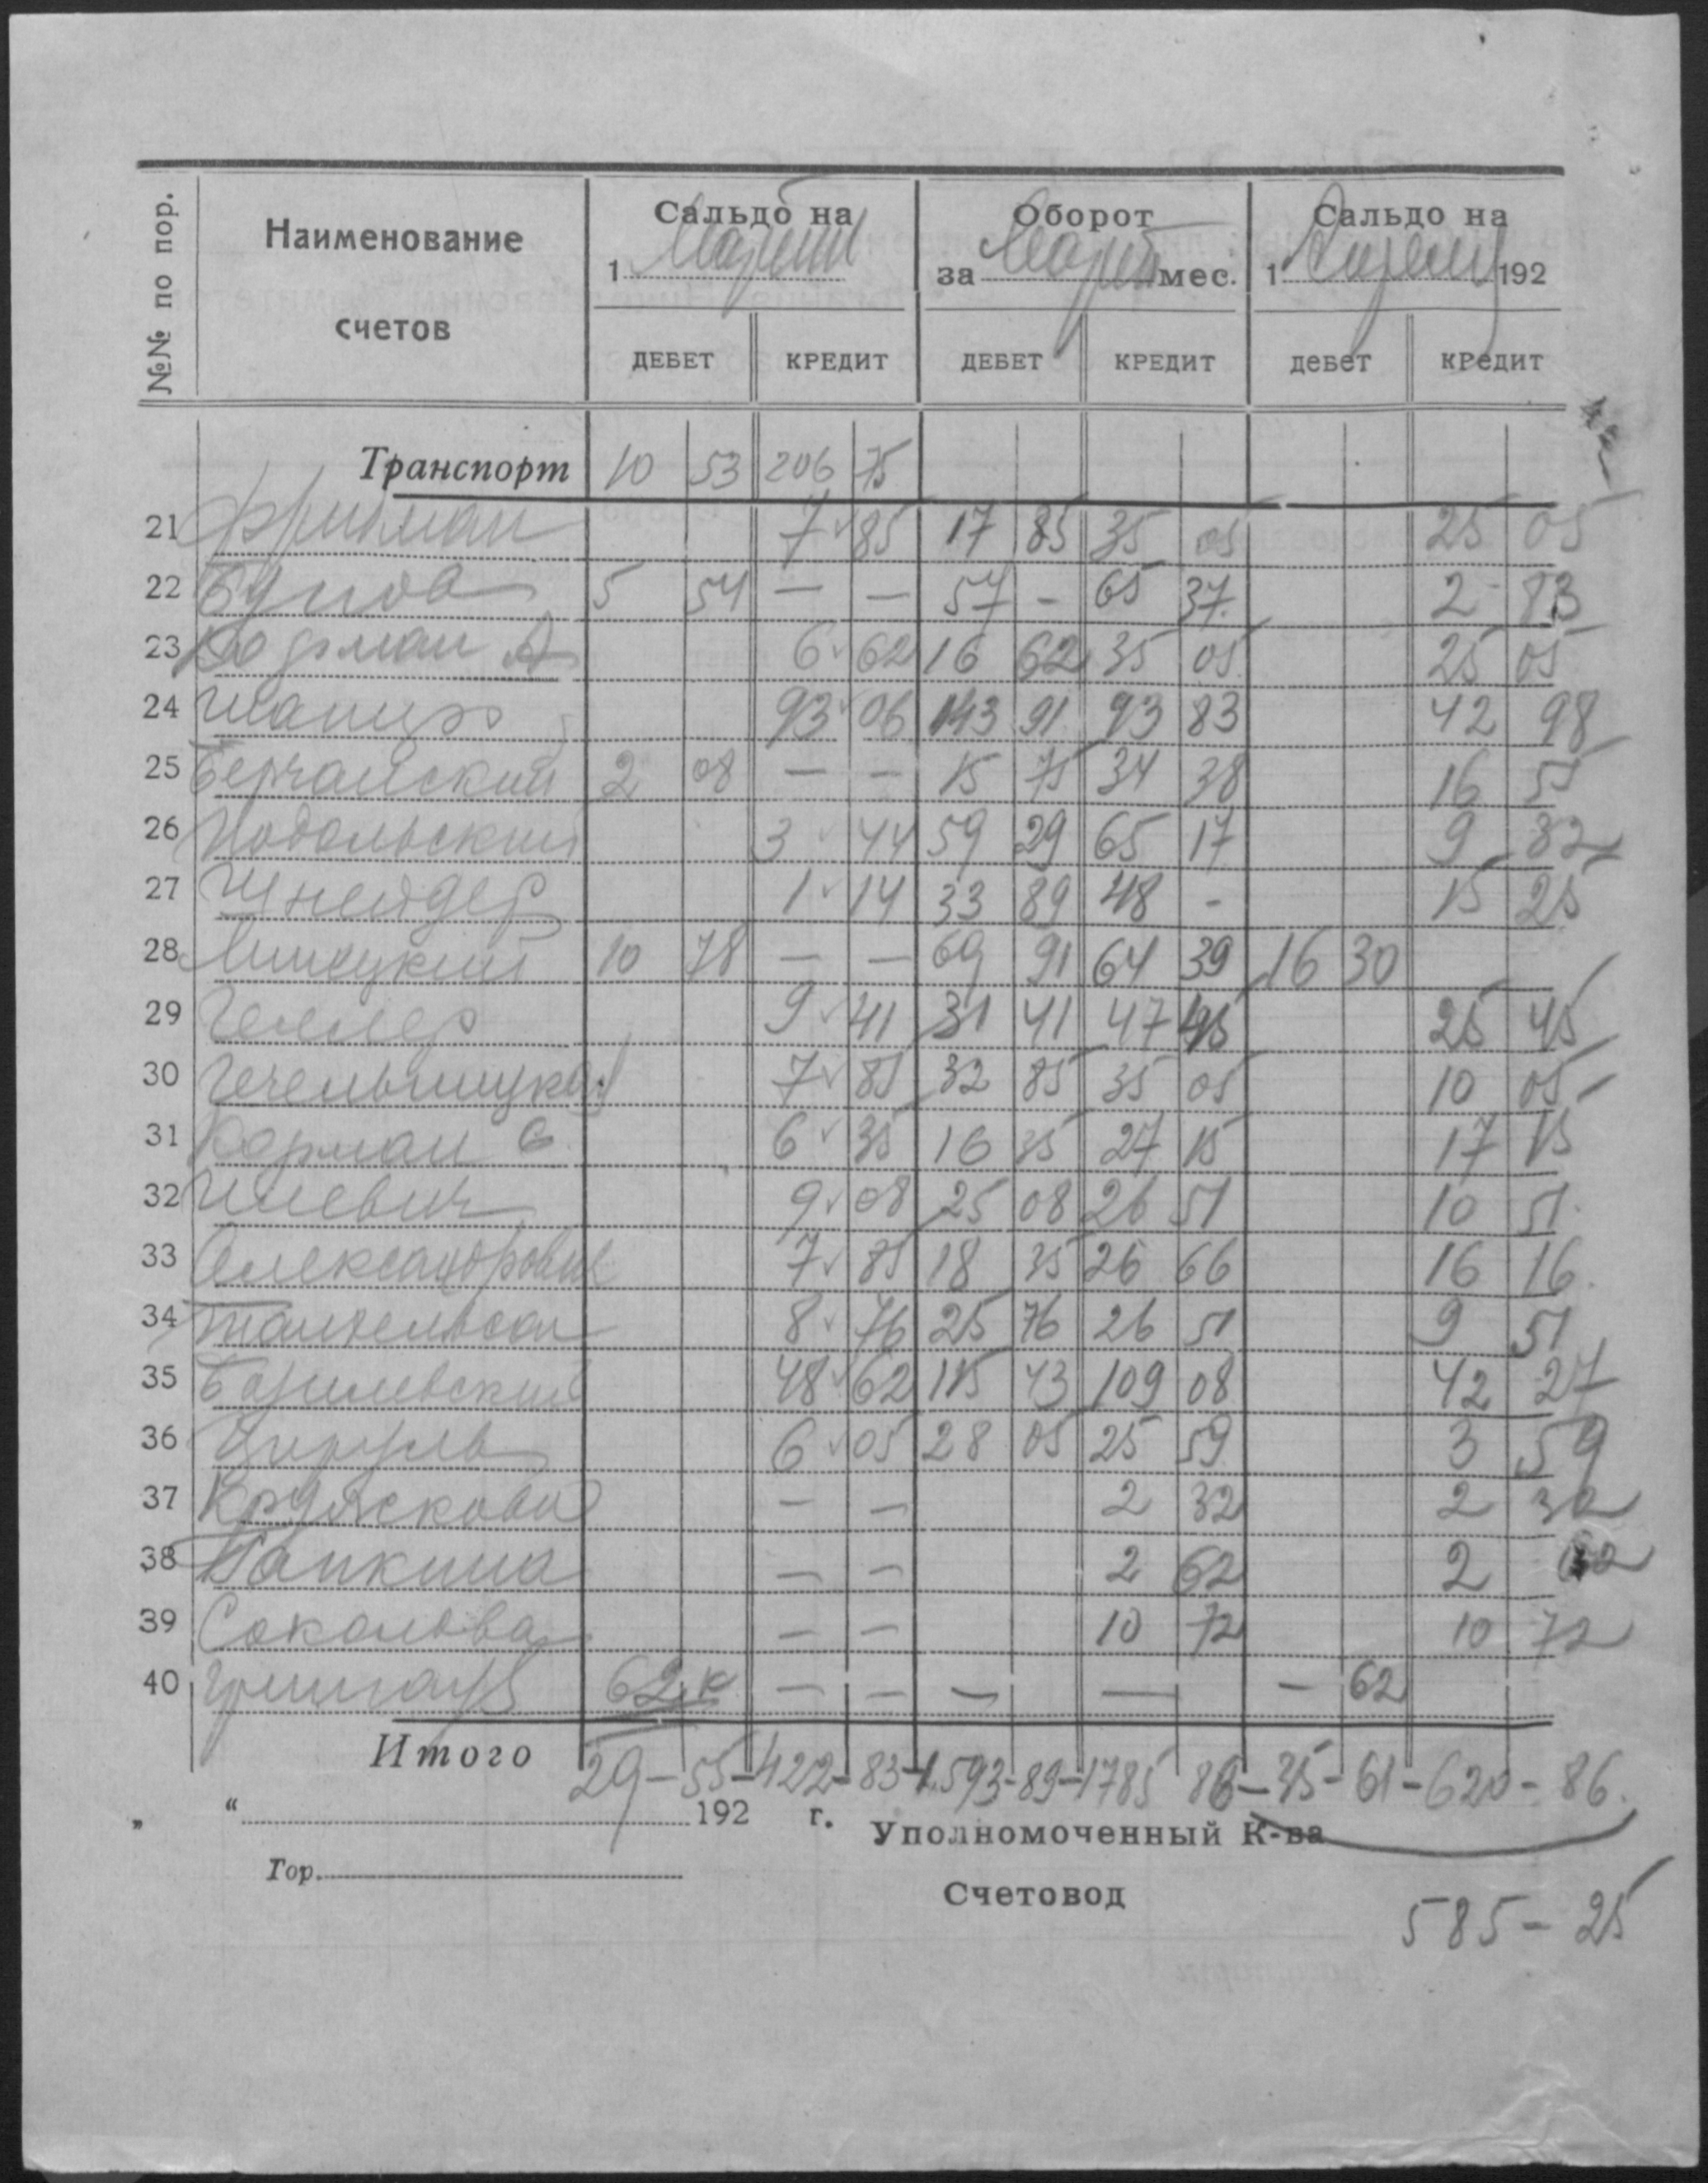 №№ по пор. Наименование счетов Сальдо на 1 Марта Оборот за Март мес. Сальдо на 1 Апреля 192
ДЕБЕТ КРЕДИТ ДЕБЕТ КРЕДИТ дебет кредит
Транспорт 10 53 206 75
21 Фришман 7 85 17 85 35 05 25 05
22 5 54 — — 57 - 65 37 2 83
23 Корман А 6 62 16 62 35 05 25 05
24 Шапиро 93 06 143 91 93 83 42 98
25 2 08 — — 15 75 34 38 16 55
26 Подольский 3 44 59 29 65 17 9 32
27 Шнейдер 1 14 33 89 48 - 15 25
28 10 78 — — 69 91 64 39 16 30
29 Геллер 9 41 31 41 47 45 25 45
30 7 85 32 85 35 05 10 05
31 Корман С. 6 35 16 35 27 15 17 15
32 9 08 25 08 26 51 10 51
33 Александрович 7 85 18 35 26 66 16 16
34 8 76 25 76 26 51 9 51
35 48 62 115 43 109 08 42 27
36 6 05 28 05 25 59 3 59
37 — — 2 32 2 32
38 Папкина — — 2 62 2 62
39 Соколова — — 10 72 10 72
40 62 к — — — — — 62
Итого 29 - 55 - 422 - 83 - 1.593 - 89 - 1785 86 - 35 - 61 - 620 - 86.
„ “ 192 г. Уполномоченный К-ва
Гор. Счетовод
585 - 25